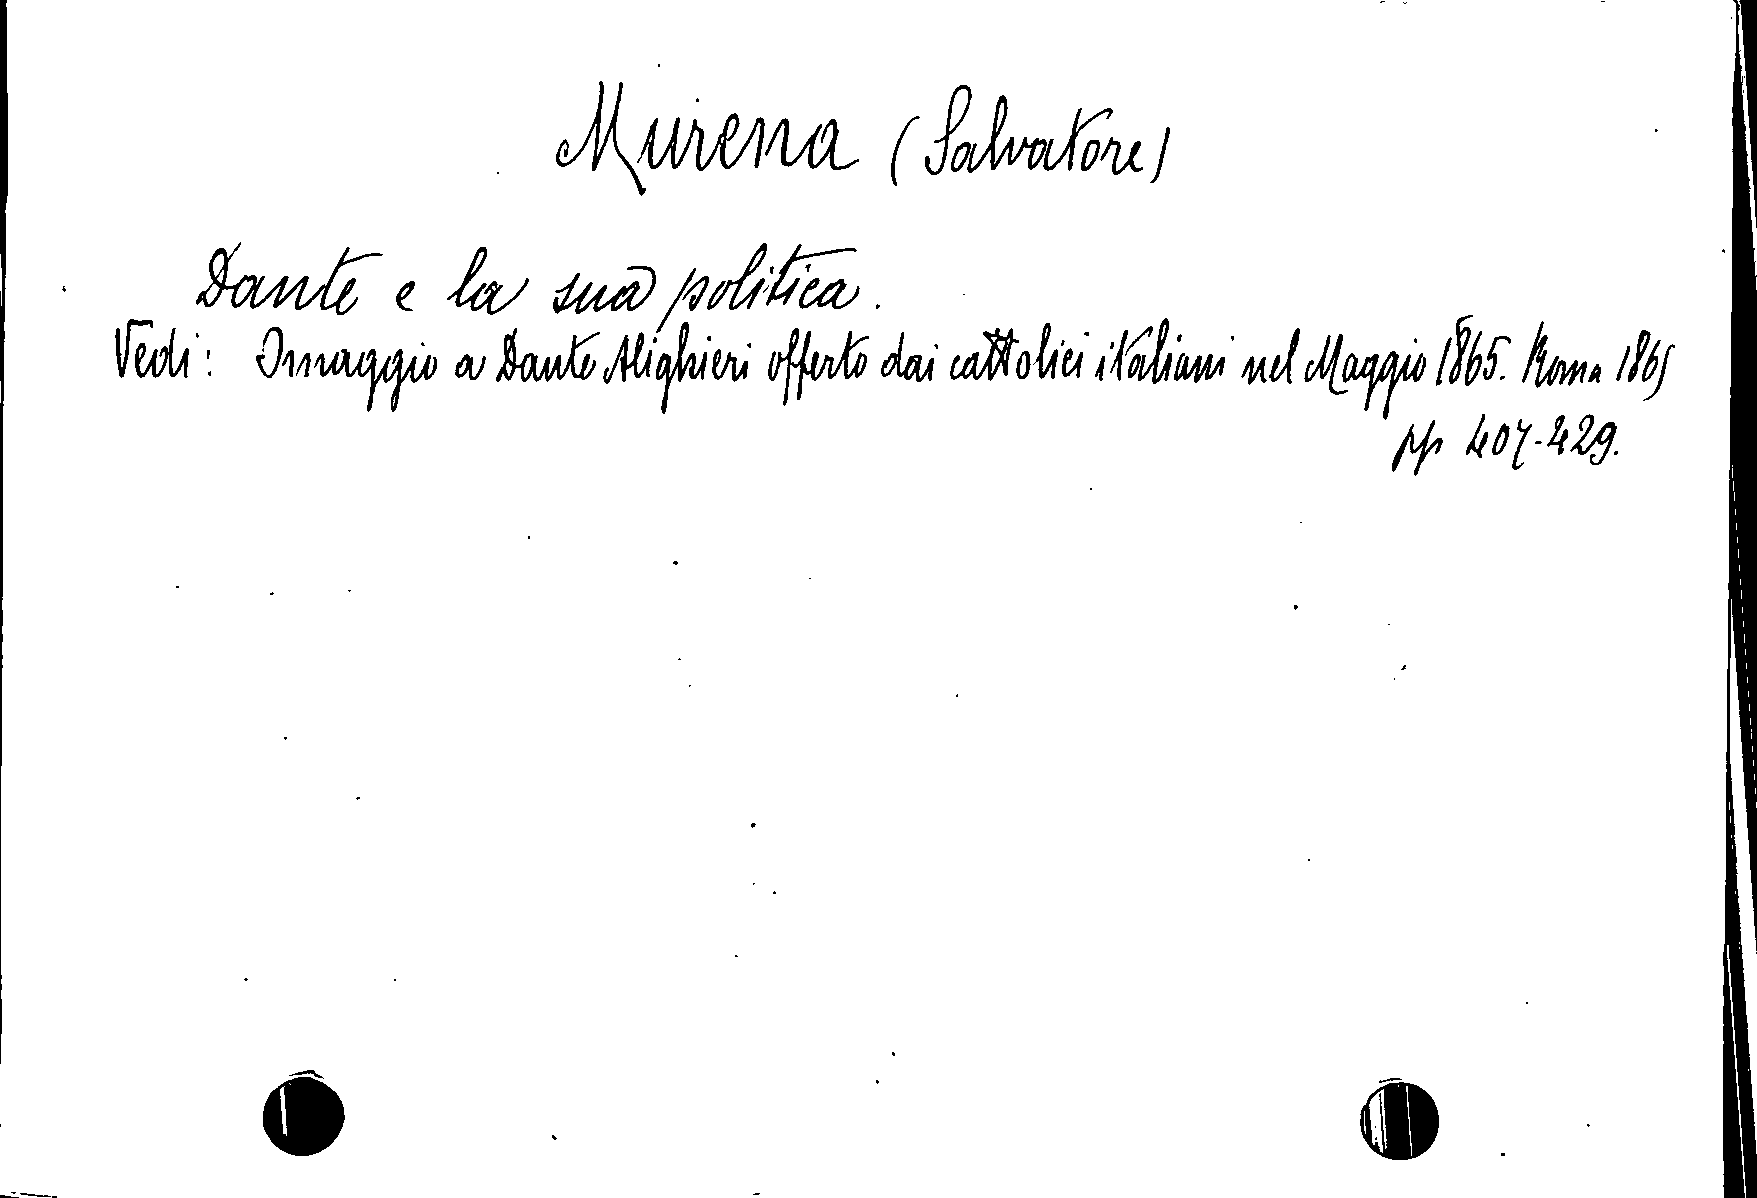 Murena (Salvatore)
Dante e la sua politica.
Vedi: Omaggio a Dante Alighieri offerto dai cattolici italiani nel Maggio 1865. Roma 1865
pp 407-429.